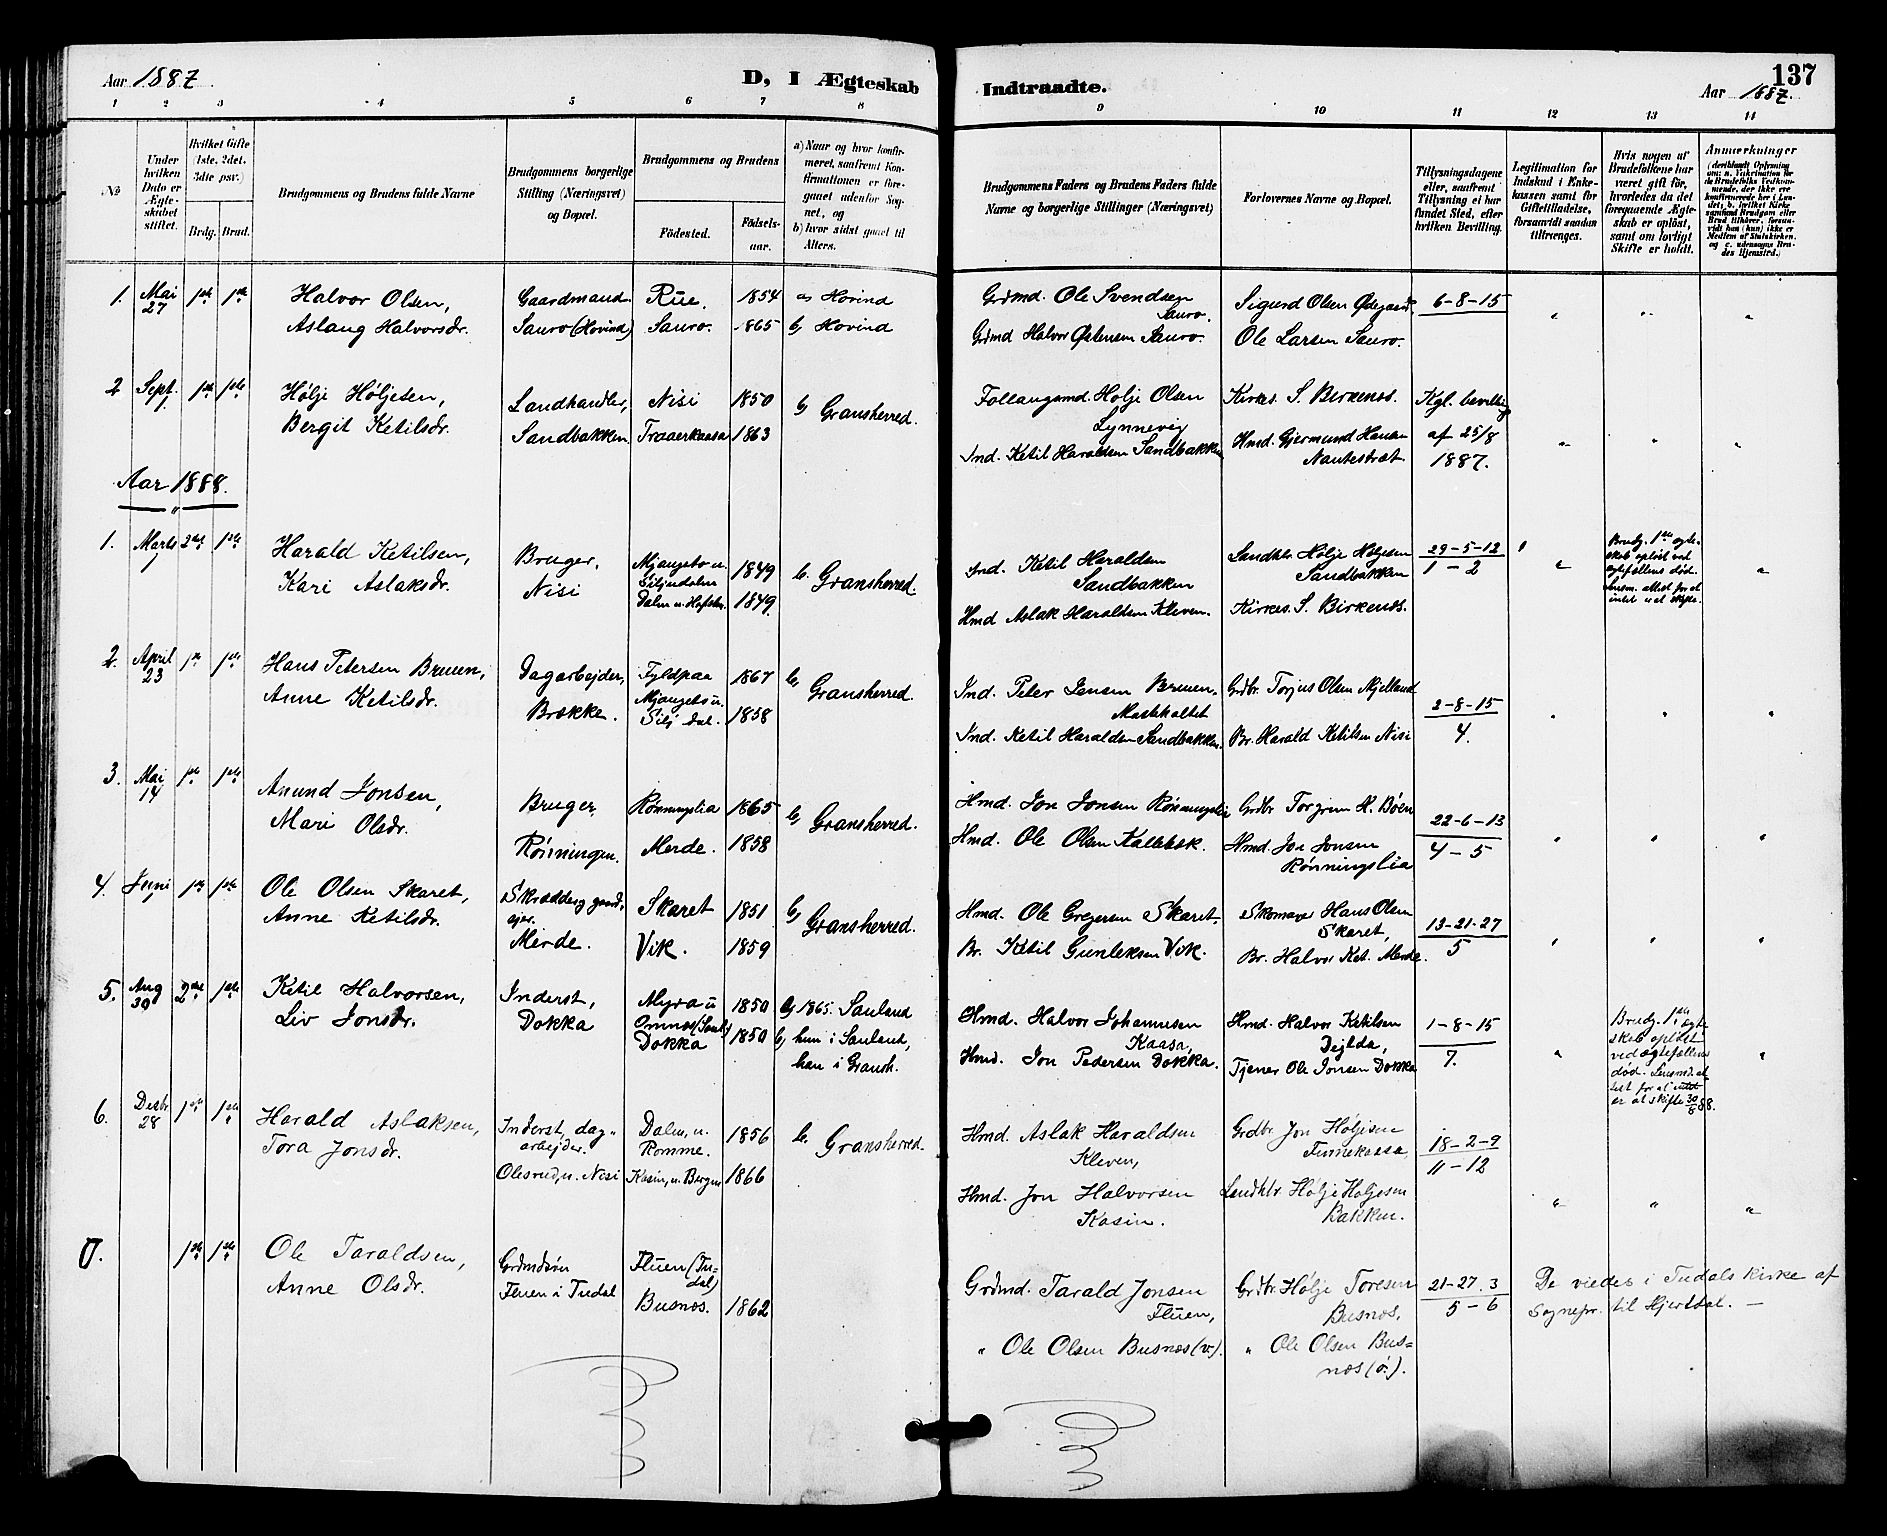 Aar 1887
D, I Ægteskab
Indtraadte.
137
Aar 1887.
1 2 3 4 5 6 7 8 9 10 11 12 13 14
No
Under hvilken Dato er Ægteskabet stiftet.
Hvilket Gifte (1ste, 2det, 3dte psv.)
Brdg. Brud.
Brudgommens og Brudens fulde Navne
Brudgommens borgerlige Stilling (Næringsvei) og Bopæl.
Brudgommens og Brudens
Fødested.
Fødselsaar.
a) Naar og hvor konfirmeret, saafremt Konfirmationen er foregaaet udenfor Sognet, og
b) hvor sidst gaaet til Alters.
Brudgommens Faders og Brudens Faders fulde Navne og borgerlige Stillinger (Næringsvei)
Forlovernes Navne og Bopæl.
Tillysningsdagene eller, saafremt Tillysning ei har fundet Sted, efter hvilken Bevilling.
Legitimation for Indskud i Enkekassen samt for Giftetilladelse, forsaavidt saadan tiltrænges.
Hvis nogen af Brudefolkene har været gift før, hvorledes da det foregaaende Ægteskab er opløst, samt om lovligt Skifte er holdt.
Anmerkninger
1. Mai 27 1ste 1ste
Halvor Olsen,
Aslaug Halvorsdr.
Gaardmand
Sauro (Hovind)
Rue. 1854
Sauro. 1865
a) Hovind
b) Hovind
Grdmd. Ole Svendsen Sauro.
Grdmd Halvor Østensen Sauro.
Sigurd Olsen Ødegaard
Ole Larsen Sauro.
6-8-15
2 Sept. 1. 1ste 1ste
Hølje Høljesen,
Bergit Ketilsdr.
Landhandler,
Sandbakken
Nisi 1850
Traaerkaasa 1863
b) Gransherred.
Follaugsmd. Hølje Olsen Lynnevig
Ind. Ketil Haraldsen Sandbakken
Kirkes. S. Birkenes.
Hmd. Gjermund Hansen Nautestræt
Kgl. bevilling
af 25/8
1887.
Aar 1888.
1. Marts 2det 1ste
Harald Ketilsen,
Kari Aslaksdr.
Bruger,
Nisi
1849
1849.
b. Gransherred.
Ind. Ketil Haraldsen Sandbakken
Hmd Aslak Haraldsen Kleven.
Landhdlr Hølje Høljesen Sandbakken
Kirkes. S. Birkenes.
29-5-12
1-2
Brudg. 1ste ægteskab opløst ved ægtefællens død.
2. April 23 1ste 1ste
Hans Petersen Bruen,
Anne Ketilsdr.
Dagarbejder,
Brække.
Fyldpaa 1867
1858
b) Gransherred.
Ind. Peter Jensen Bruen,
Ind. Ketil Haraldsen Sandbakken.
Grdbr. Torjus Olsen Mjelland
Br. Harald Ketilsen Nisi
2-8-15
4.
3. Mai 14 1ste 1ste
Anund Jonsen,
Mari Olsdr.
Bruger,
Rönningen.
Rönningslia 1865
Merde. 1858
b) Gransherred.
Hmd. Jon Jonsen Rönningslia
Hmd. Ole Olsen Kallebæk.
Grdbr Torgrim H. Bøen
Hmd. Jon Jonsen Rönningslia
22-6-13
4-5
4. Juni 1ste 1ste
Ole Olsen Skaret,
Anne Ketilsdr.
Skrædder og gaardejer.
Merde.
Skaret 1851
Vik. 1859
b) Gransherred.
Hmd. Ole Gregersen Skaret,
Br. Ketil Gunleksen Vik.
Skomaker Hans Olsen Skaret,
Br. Halvor Ket. Merde.
13-21-27
5
5. Aug 30 2det 1ste
Ketil Halvorsen,
Liv Jonsdr.
Inderst,
Dokka
Myra u Omnes (Saul.) 1850
Dokka 1850
a) 1865. Sauland
b) hun i Sauland, han i Gransh.
Hmd. Halvor Johannesen Kaasa,
Hmd. Jon Pedersen Dokka.
Hmd. Halvor Ketilsen Dejlda,
Tjener Ole Jonsen Dokka
1-8-15
7.
Brudg. 1ste ægteskab opløst ved ægtefællens død. Lensmd. attest for at intet er at skifte 30/5 88.
6. Desbr. 28 1ste 1ste
Harald Aslaksen,
Tora Jonsdr.
Inderst, dagarbejder.
Olesrud, u. Nisi
Dalen, u. Romme. 1856
Kasin, u. Bergen 1866
b. Gransherred.
Hmd. Aslak Haraldsen Kleven,
Hmd. Jon Halvorsen Kasin.
Grdbr Jon Høljesen Finnekaasa,
Landhdlr. Hølje Høljesen Bakken.
18-2-9
11-12
U. 1ste 1ste
Ole Taraldsen,
Anne Olsdr.
Grdmdsøn
Fluen i Tudal
Fluen (Tudal)
Busnes. 1862
Grdmd. Tarald Jonsen Fluen,
" Ole Olsen Busnes (v.).
Grdbr. Hølje Toresen Busnes,
" Ole Olsen Busnes (ö.).
21-27.3
5-6
De viedes i Tudals kirke af
Sognepr. til Hjertdal. —